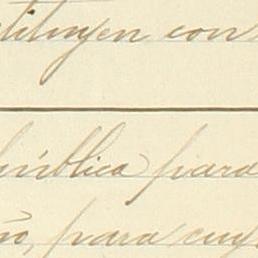 tituyen con
ública para
no, para cuy